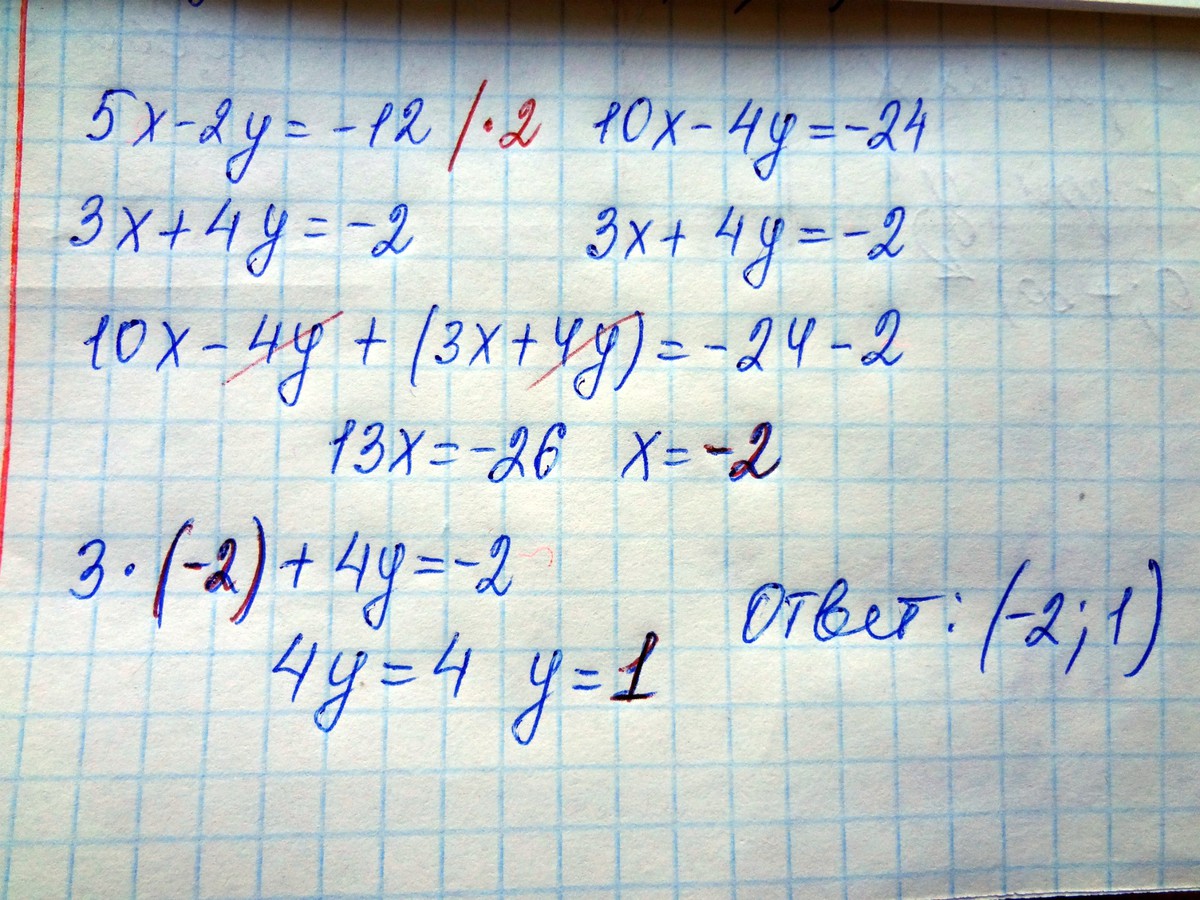 5x-2y=-12 /·2 10x-4y=-24
3x+4y=-2 3x+4y=-2
10x-4y+(3x+4y)=-24-2
13x=-26 x=-2
3·(-2)+4y=-2
Ответ: (-2;1)
4y=4 y=1